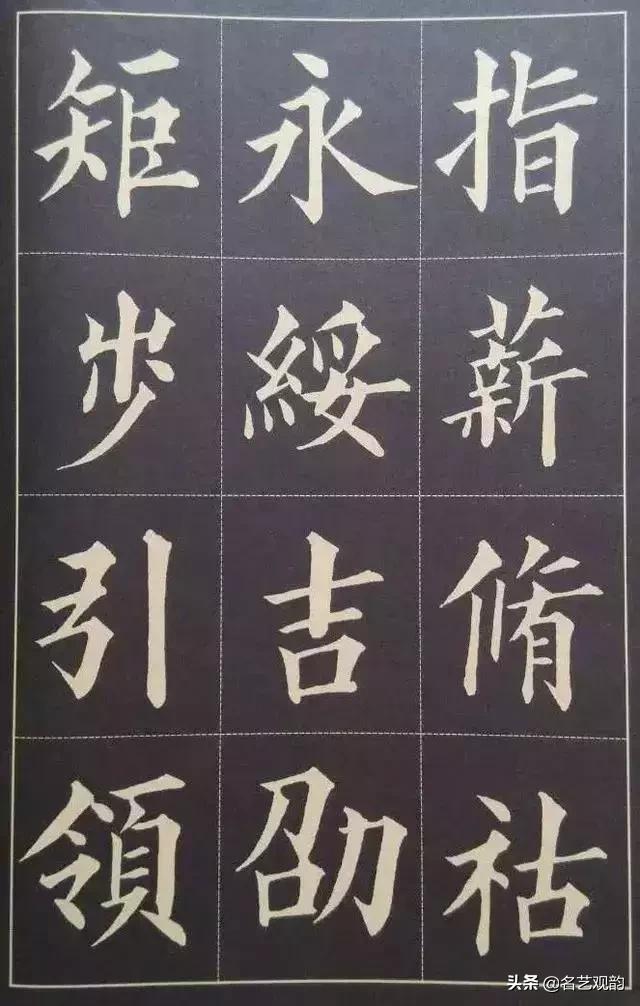 指薪脩祜
永綏吉劭
矩步引領
头条 @名艺观韵